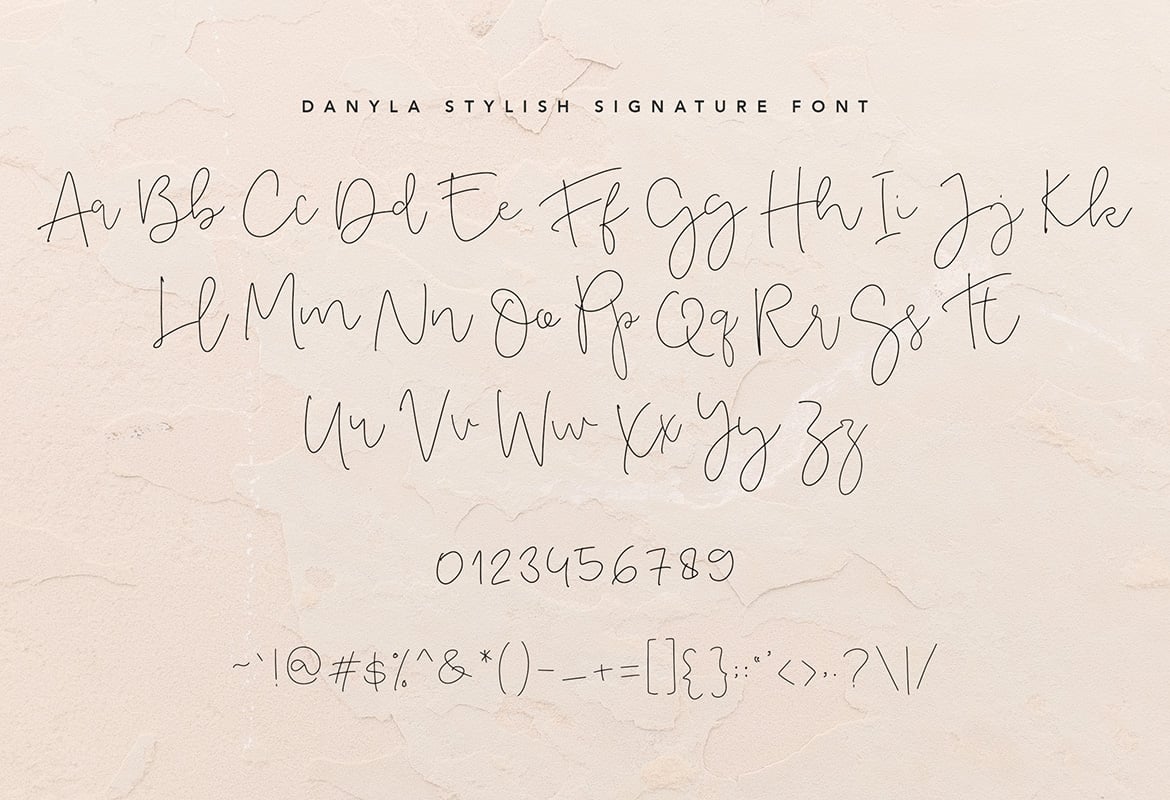 DANYLA STYLISH SIGNATURE FONT
Aa Bb Cc Dd Ee Ff Gg Hh Ii Jj Kk
Ll Mm Nn Oo Pp Qq Rr Ss Tt
Uu Vv Ww Xx Yy Zz
0123456789
~`!@#$%^&*()-_+=[]{};:"'<>,.?\|/